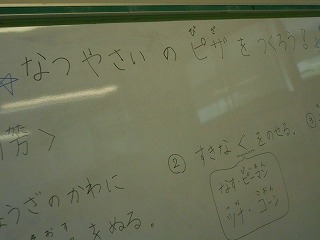 ☆なつやさいのピザをつくろう!
ぴざ
方>
うざのかわに
をぬる。
② すきなぐをのせる。③
なす・ピーマン
ツナ・コーン